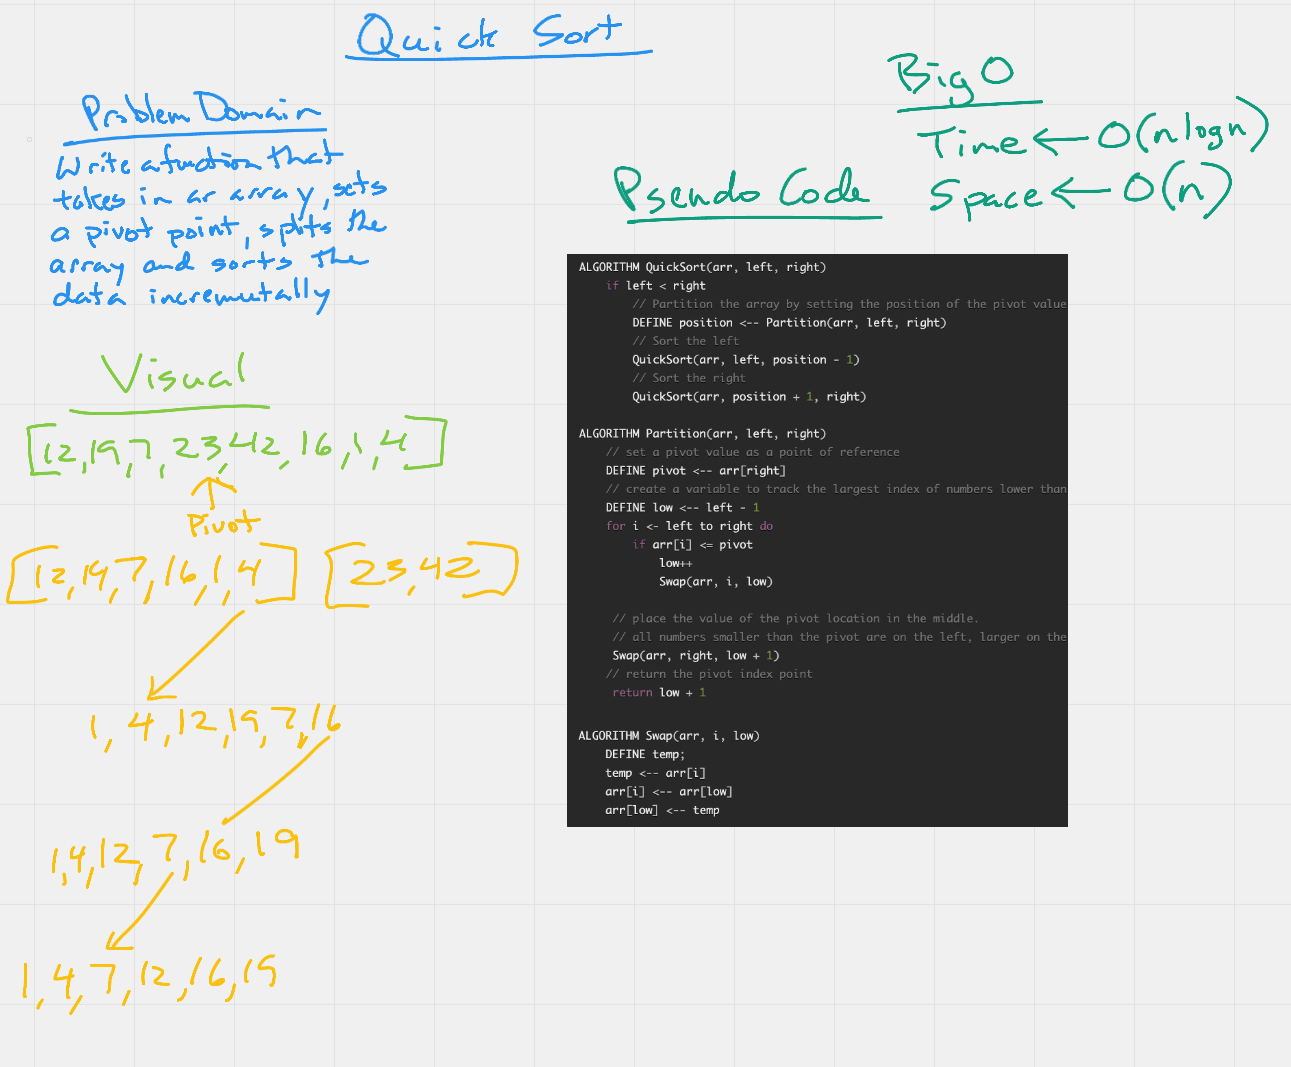 Quick Sort
Problem Domain
Write a function that
takes in ar array, sets
a pivot point, splits the
array and sorts the
data incremutally
Visual
[12,19,7,23,42,16,1,4]
Pivot
[12,19,7,16,1,4] [23,42]
1, 4,12,19,7,16
1,4,12,7,16,19
1,4,7,12,16,19
Big O
Time ← O(nlogn)
Space ← O(n)
Psendo Code
ALGORITHM QuickSort(arr, left, right)
if left < right
// Partition the array by setting the position of the pivot value
DEFINE position <-- Partition(arr, left, right)
// Sort the left
QuickSort(arr, left, position - 1)
// Sort the right
QuickSort(arr, position + 1, right)
ALGORITHM Partition(arr, left, right)
// set a pivot value as a point of reference
DEFINE pivot <-- arr[right]
// create a variable to track the largest index of numbers lower than
DEFINE low <-- left - 1
for i <- left to right do
if arr[i] <= pivot
low++
Swap(arr, i, low)
// place the value of the pivot location in the middle.
// all numbers smaller than the pivot are on the left, larger on the
Swap(arr, right, low + 1)
// return the pivot index point
return low + 1
ALGORITHM Swap(arr, i, low)
DEFINE temp;
temp <-- arr[i]
arr[i] <-- arr[low]
arr[low] <-- temp